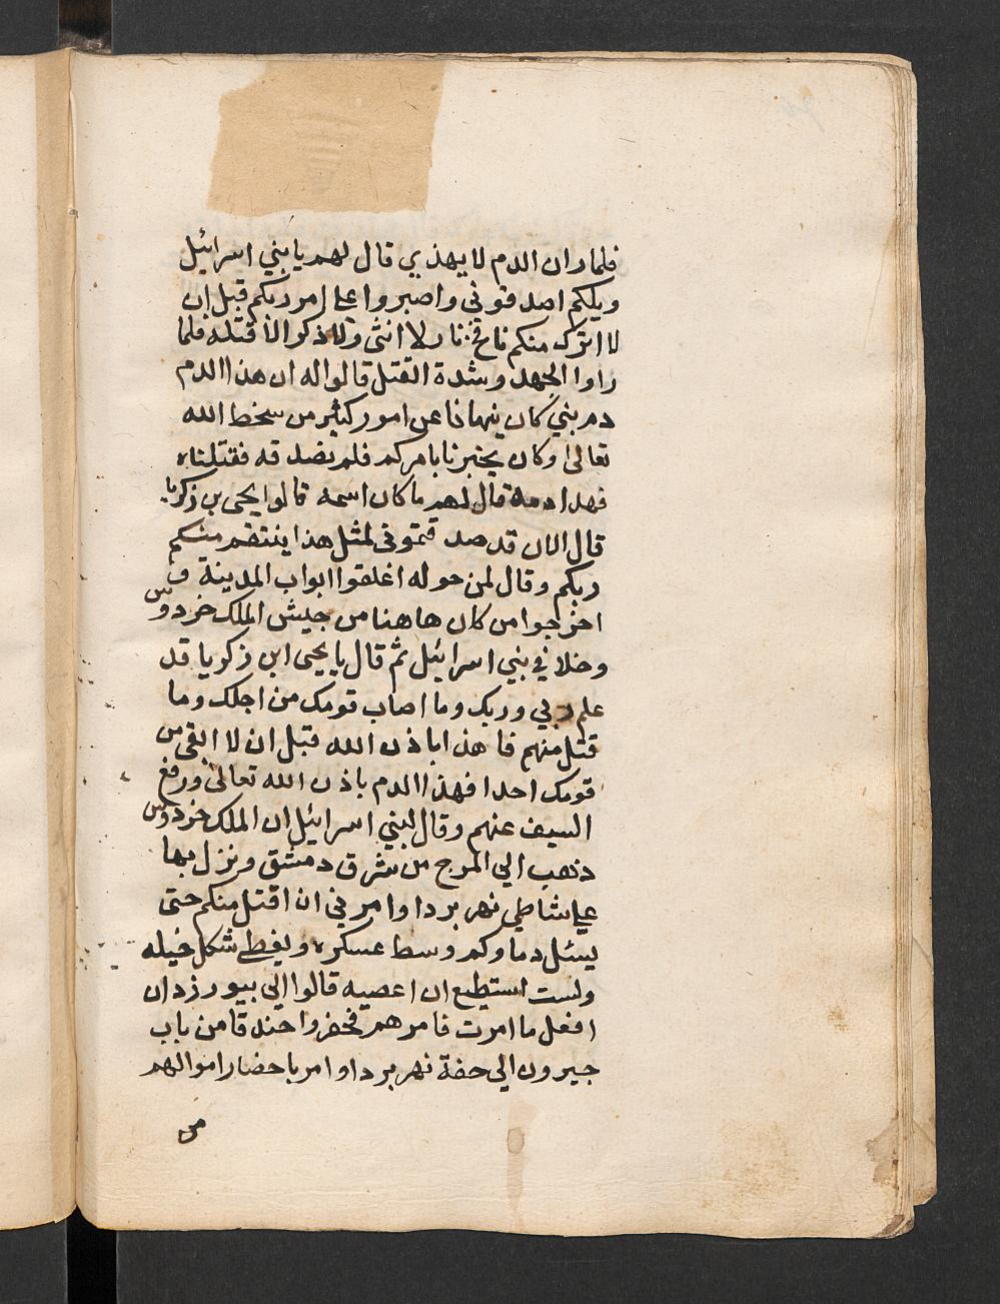 فلما راى ان الدم لا يهذي قال لهم يا بني اسرائيل
ويلكم اصدقوني واصبروا على امر ربكم قبل ان
لا اترك منكم نافخ نار لا انثى ولا ذكر الا قتلته فلما
راوا الجهد وشدة القتل قالوا له ان هذا الدم
دم نبي كان ينهانا عن امور كثير من سخط الله
تعالى وكان يخبرنا بامركم فلم نصدقه فقتلناه
فهذا دمه قال لهم ما كان اسمه قالوا يحيى بن زكريا
قال الان قد صدقتموني لمثل هذا ينتقم منكم
ربكم وقال لمن حوله اغلقوا ابواب المدينة و
اخرجوا من كان هاهنا من جيش الملك خردوس
وخلا في بني اسرائيل ثم قال يا يحيى ابن زكريا قد
علم ربي وربك وما اصاب قومك من اجلك وما
قتل منهم فاهذا باذن الله قبل ان لا ابقي من
قومك احدا فهذا الدم باذن الله تعالى ورفع
السيف عنهم وقال لبني اسرائيل ان الملك خردوس
ذهب الي المرج من شرق دمشق ونزل بها
على شاطي نهر بردا وامرني ان اقتل منكم حتى
يسئل دماوكم وسط عسكره ويغطي شكل خيله
ولست استطيع ان اعصيه قالوا الي بيورزدان
افعل ما امرت فامرهم فحفروا خندقا من باب
جيرون الي حفة نهر بردا وامر باحضار اموالهم
من